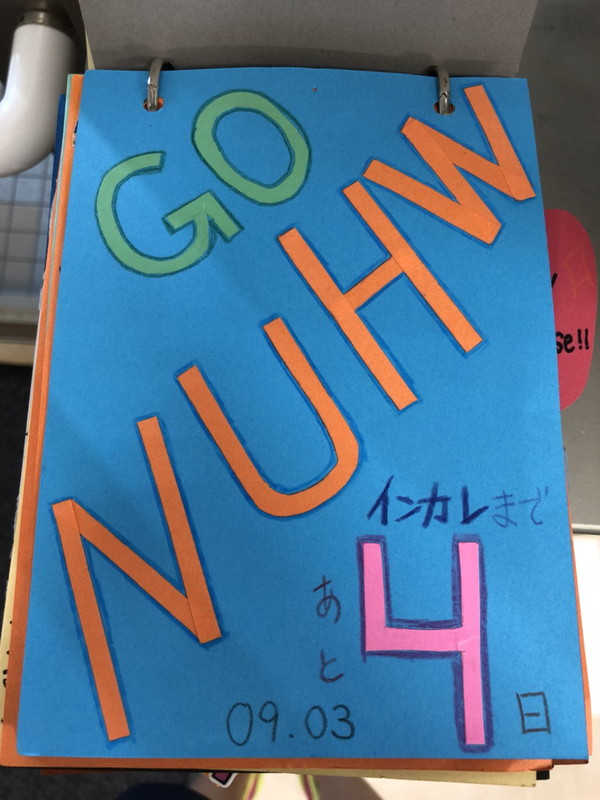 GO
NUHW
インカレまで
あと4日
09.03
se!!